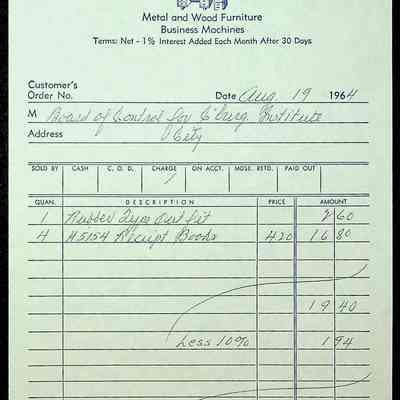 Metal and Wood Furniture
Business Machines
Terms: Net - 1% Interest Added Each Month After 30 Days
Customer's
Order No. Date Aug. 19 1964
M Board of Control for C'burg Institute
Address City
SOLD BY CASH C. O. D. CHARGE ON ACCT. MDSE. RETD. PAID OUT
QUAN. DESCRIPTION PRICE AMOUNT
1 Rubber Type Outfit 2 60
4 #5154 Receipt Books 420 16 80
19 40
Less 10% 1 94